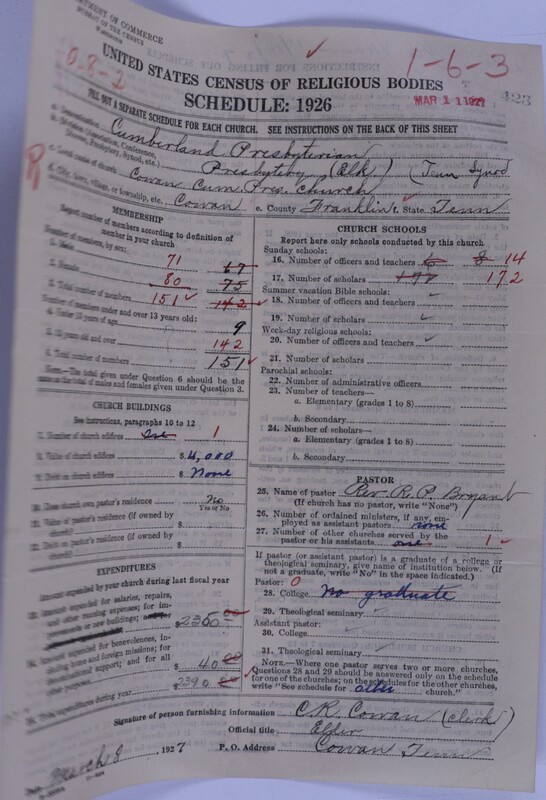 DEPARTMENT OF COMMERCE
BUREAU OF THE CENSUS
WASHINGTON
1-6-3
0-8-2
UNITED STATES CENSUS OF RELIGIOUS BODIES
SCHEDULE: 1926
MAR 11 1927
423
FILL OUT A SEPARATE SCHEDULE FOR EACH CHURCH. SEE INSTRUCTIONS ON THE BACK OF THIS SHEET
a. Denomination Cumberland Presbyterian
b. Division (Association, Conference, Diocese, Presbytery, Synod, etc.) Presbytery (Elk) (Tenn Synod
c. Local name of church Cowan Cum. Pres. Church
d. City, town, village, or township, etc. Cowan e. County Franklin State Tenn
MEMBERSHIP
Report number of members according to definition of member in your church
Number of members, by sex:
1. Male 71 67
2. Female 80 75
3. Total number of members 151 142
Number of members under and over 13 years old:
4. Under 13 years of age 9
5. 13 years old and over 142
6. Total number of members 151
NOTE.—The total given under Question 6 should be the same as the total of males and females given under Question 3.
CHURCH BUILDINGS
See instructions, paragraphs 10 to 12
7. Number of church edifices One 1
8. Value of church edifices $4,000
9. Debt on church edifices $ None
10. Does church own pastor's residence No
Yes or No
11. Value of pastor's residence (if owned by church) $
12. Debt on pastor's residence (if owned by church) $
EXPENDITURES
Amount expended by your church during last fiscal year
$2250 00
$40 00
$2290 00
15. Total expenditures during year
CHURCH SCHOOLS
Report here only schools conducted by this church
Sunday schools:
16. Number of officers and teachers 6 8 14
17. Number of scholars 172
Summer vacation Bible schools:
18. Number of officers and teachers
19. Number of scholars
Week-day religious schools:
20. Number of officers and teachers
21. Number of scholars
Parochial schools:
22. Number of administrative officers
23. Number of teachers—
a. Elementary (grades 1 to 8)
b. Secondary
24. Number of scholars—
a. Elementary (grades 1 to 8)
b. Secondary
PASTOR
25. Name of pastor Rev. R. P. Bryant
(If church has no pastor, write "None")
26. Number of ordained ministers, if any, employed as assistant pastors none
27. Number of other churches served by the pastor or his assistants one 1
If pastor (or assistant pastor) is a graduate of a college or theological seminary, give name of institution below. (If not a graduate, write "No" in the space indicated.)
Pastor: 0
28. College No graduate
29. Theological seminary
Assistant pastor:
30. College
31. Theological seminary
NOTE.—Where one pastor serves two or more churches, Questions 28 and 29 should be answered only on the schedule for one of the churches; on the schedules for the other churches, write "See schedule for other church."
Signature of person furnishing information C.R. Cowan (clerk)
Official title Elder
Date March 8, 1927 P. O. Address Cowan Tenn